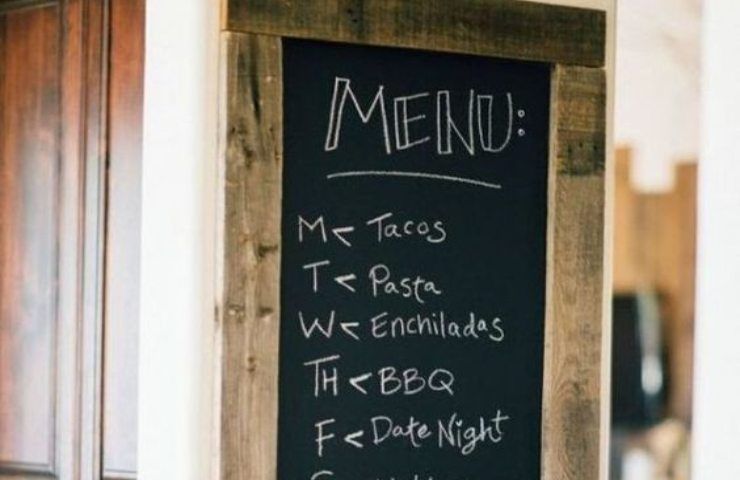 MENU:
M< Tacos
T< Pasta
W< Enchiladas
TH< BBQ
F< Date Night